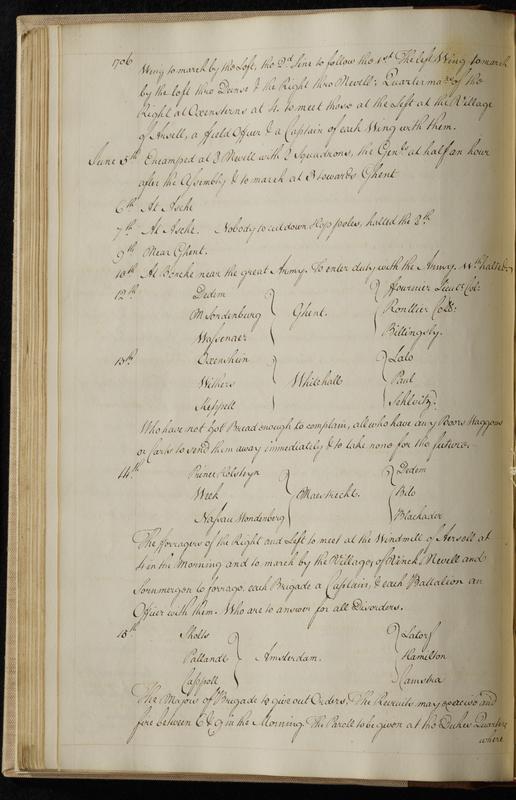 1706 Wing to march by the Left, the 2d. Line to follow the 1st The left Wing to march
by the left thro Dunse & the Right thro Nevell: Quarterma. of the
Right at Oxensterns at 4. to meet those at the Left at the Village
of Ansell, a ffield Officer & a Captain of each Wing with them.
June 5th Encamped at Nevell with 2 Squadrons, the Genle at half an hour
after the Assembly & to march at 3 towards Ghent
6th At Asche
7th At Asche. Nobody to cut down Hop poles, halted the 8th
9th Near Ghent.
10th At near the great Army. To enter duty with the Army. 11th halted.
12th Dedem } { Howeuier Lieut. Col:
Sondenburg } Ghent. { Ronttier Colls:
Wassenaer } { Billingsby.
13th Oxenstern } { Lalo
Withers } Whitehall { Paul
Keppell } { Schlvitz.
Who have not Got Bread enough to complain, all who have any Boors Waggons
or Carts to send them away immediately & to take none for the future.
14th Prince Holsteyn } { Dedem
Week } Maestrecht. { Bilo
Nassau Wondenberg } { Blackader
The fforragers of the Right and Left to meet at the Windmill of Aersell at
4 in the Morning and to march by the Villages of Vinck Nevell and
to forrage. each Brigade a Captain, & each Battalion an
Officer with them. Who are to answer for all Disorders.
15th Sholts } {
Pallandt } Amsterdam. { Hamelton
Cappoll } { Camstra
The Majors of Brigade to give out Orders. The Recruits may exercise and
fire between 6 & 9 in the Morning. The Parole to be given at the Dukes Quarters
where